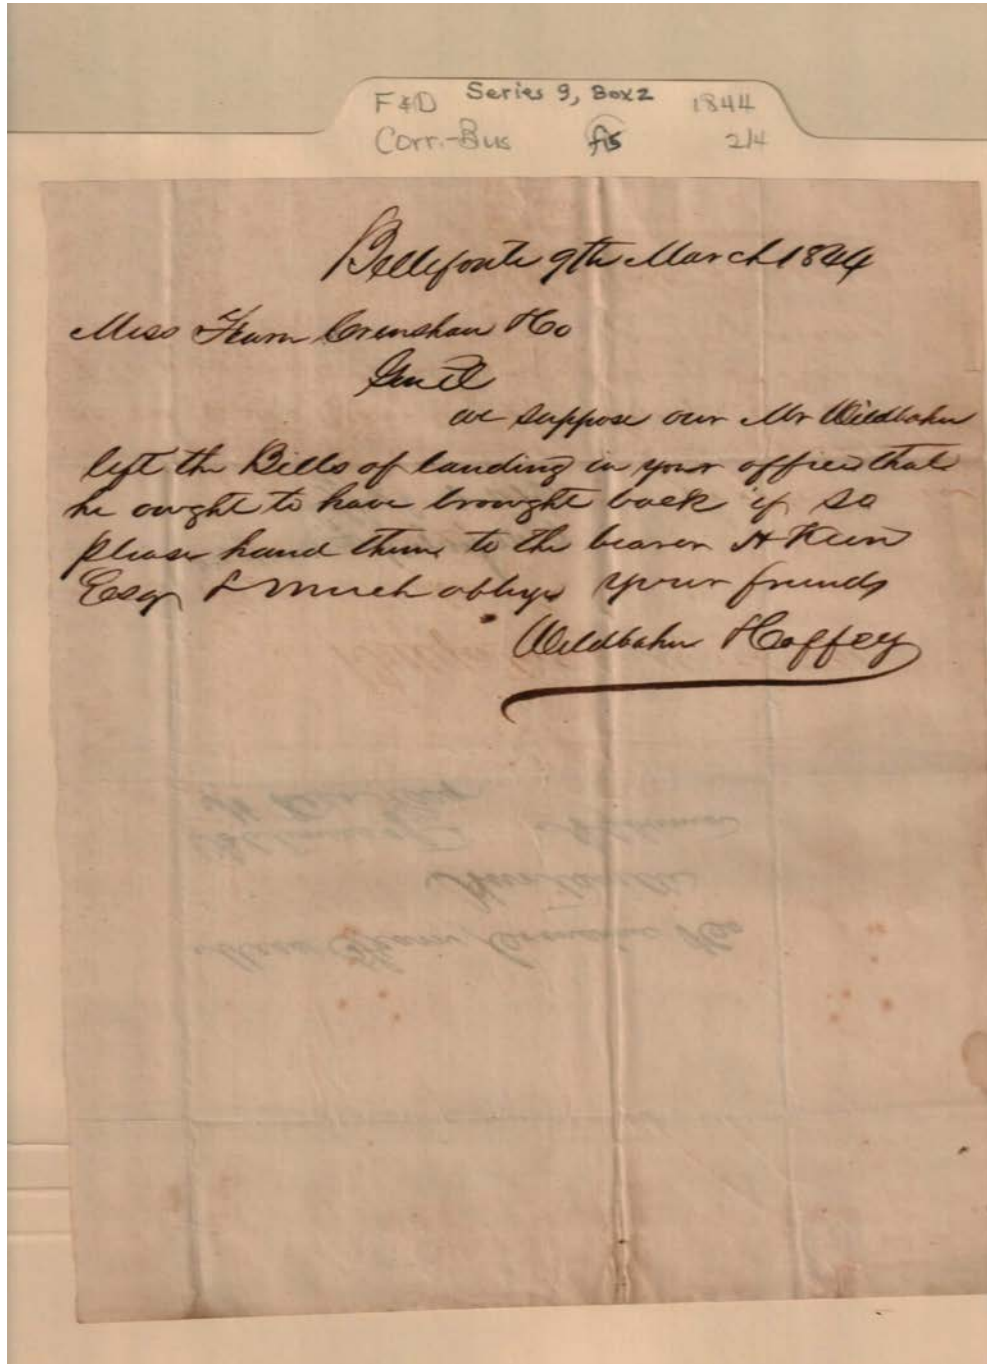 F&D Series 9, Box 2 1844
Corr.-Bus f15 2/4
Bellefonte 9th March 1844
Mess Fearn Crenshaw & Co
Gent
we suppose our Mr Wildbahn
left the Bills of landing in your office that
he ought to have brought back if so
please hand them to the bearer H Keen
Esqr & much oblige your friends
Wildbahn & Caffey